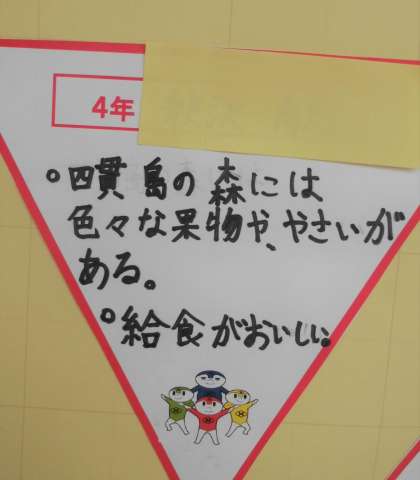 4年
○四貫島の森には
色々な果物や、やさいが
ある。
○給食がおいしい。